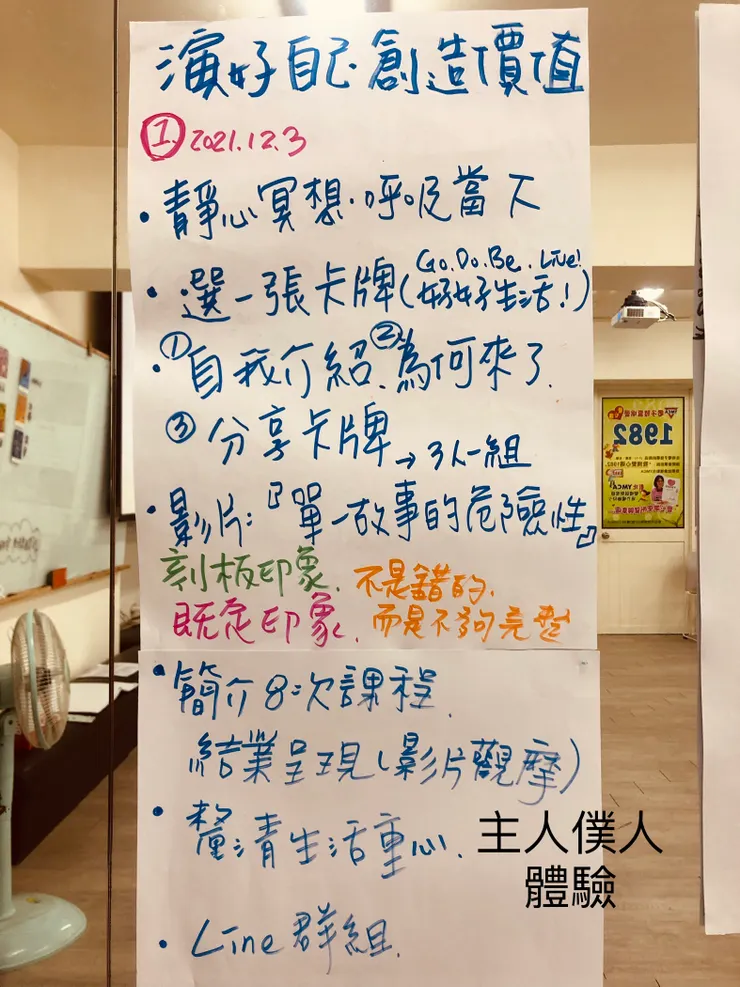 演好自己·創造價值
① 2021.12.3
·靜心冥想·呼吸當下
Go.Do.Be.Live!
·選一張卡牌(好好生活!)
·①自我介紹.②為何來了.
③分享卡牌→3人一組
·影片:『單一故事的危險性』
刻板印象.不是錯的.
既定印象.而是不夠完整
·簡介8次課程.
結業呈現(影片觀摩)
·釐清生活重心.
主人僕人
體驗
·Line群組.
1982
YMCA